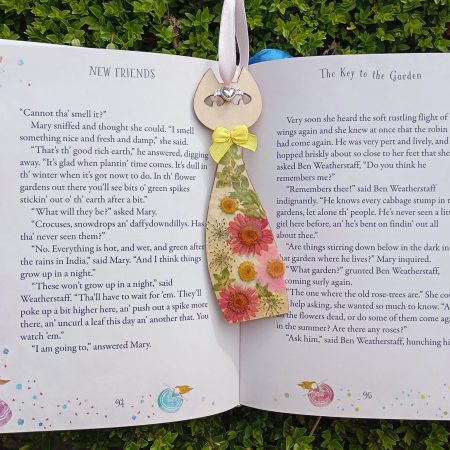 NEW FRIENDS
"Cannot tha' smell it?"
Mary sniffed and thought she could. "I smell
something nice and fresh and damp," she said.
"That's th' good rich earth," he answered, digging
away. "It's glad when plantin' time comes. It's dull in
th' winter when it's got nowt to do. In th' flower
gardens out there you'll see bits o' green spikes
stickin' out o' th' earth after a bit."
"What will they be?" asked Mary.
"Crocuses, snowdrops an' daffydowndillys. Has
tha' never seen them?"
"No. Everything is hot, and wet, and green after
the rains in India," said Mary. "And I think things
grow up in a night."
"These won't grow up in a night," said
Weatherstaff. "Tha'll have to wait for 'em. They'll
poke up a bit higher here, an' push out a spike more
there, an' uncurl a leaf this day an' another that. You
watch 'em."
"I am going to," answered Mary.
94
The Key to the Garden
Very soon she heard the soft rustling flight of
wings again and she knew at once that the robin
had come again. He was very pert and lively, and
hopped briskly about so close to her feet that she
asked Ben Weatherstaff, "Do you think he
remembers me?"
"Remembers thee!" said Ben Weatherstaff
indignantly. "He knows every cabbage stump in
gardens, let alone th' people. He's never seen a little
girl here before, an' he's bent on findin' out all
about thee."
"Are things stirring down below in the dark in
that garden where he lives?" Mary inquired.
"What garden?" grunted Ben Weatherstaff,
coming surly again.
"The one where the old rose-trees are." She could
help asking, she wanted so much to know. "
the flowers dead, or do some of them come again
in the summer? Are there any roses?"
"Ask him," said Ben Weatherstaff, hunching his
95